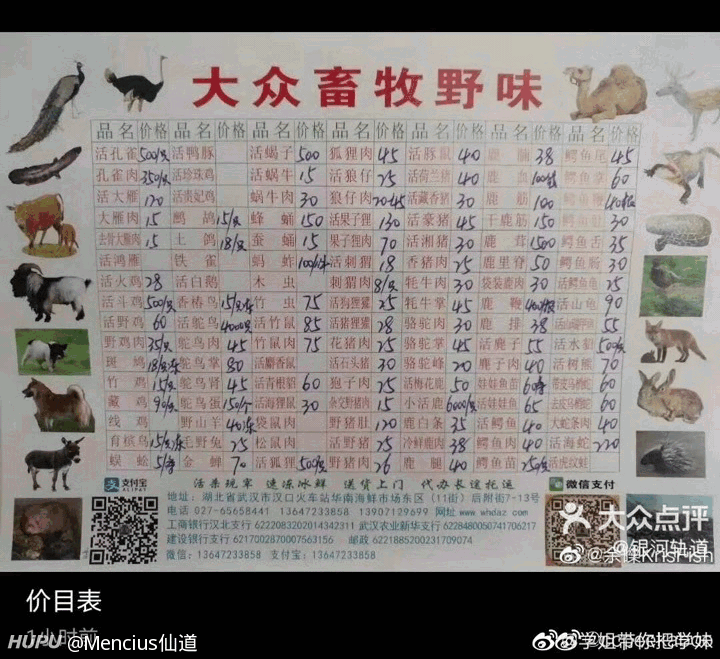 大众畜牧野味
品名 价格 品名 价格 品名 价格 品名 价格 品名 价格 品名 价格 品名 价格
活孔雀 500/只 活鸭豚 活蝎子 500 狐狸肉 45 活豚鼠 40 鹿 38 鳄鱼尾 45
孔雀肉 350/只 活珍珠鸡 活蜗牛 15 活狼仔 25 活荷兰猪 40 鹿血 鳄鱼掌 60
活大雁 120 活贵妃鸡 蜗牛肉 30 狼仔肉 20-45 活藏香猪 30 鹿筋 100 鳄鱼鞭
大雁肉 15 鹧鸪 15/只 蜂蛹 150 活果子狸 130 活豪猪 45 干鹿筋 150 30
去骨大雁肉 15 土鸽 18/只 蚕蛹 15 果子狸肉 70 活湘猪 30 鹿茸 1500 鳄鱼舌 35
活鸿雁 铁雀 蚂蚱 活刺猬 香猪肉 25 鹿里脊 50 鳄鱼肠 30
活火鸡 28 活白鹅 木虫 刺猬肉 8/只 牦牛肉 30 袋装鹿肉 30 活鳄鱼龟 25
活斗鸡 500/只 香椿鸟 竹虫 75 活狗獾 25 牦牛掌 45 鹿鞭 活山龟 90
活野鸡 60 活鸵鸟 4000/只 活竹鼠 85 活猪獾 28 骆驼肉 30 鹿排 38 55
野鸡肉 35/只 鸵鸟肉 45 竹鼠肉 75 花猪肉 25 骆驼掌 45 活麂子 55 活水貂
斑鸠 鸵鸟掌 80 活麝香鼠 活石头猪 30 骆驼峰 20 麂子肉 40 活树熊 70
竹鸡 15/只 鸵鸟肾 45 活青根貂 60 狍子肉 25 活梅花鹿 50 娃娃鱼苗 60
藏鸡 90/只 鸵鸟蛋 150/个 活海狸鼠 30 杂交野猪肉 15 小活鹿 6000/只 活娃娃鱼 65 60
线鸡 野山羊 袋鼠肉 野猪肚 120 鹿白条 35 活鳄鱼 40 大蛇条肉 40
育槟鸟 毛野兔 25 松鼠肉 活野猪 25 冷鲜鹿肉 38 鳄鱼肉 40 活海蛇 220
蜈蚣 金蝉 70 活狐狸 500/只 野猪肉 26 鹿腿 40 鳄鱼苗 活虎纹蛙
支付宝 活杀现宰 速冻冰鲜 送货上门 代办长途托运 微信支付
地址：湖北省武汉市汉口火车站华南海鲜市场东区（11街）后附街7-13号
电话 027-65658441 13647233858 13907129699 网址 www.whdaz.com
工商银行汉北支行 6222083202014342311 武汉农业新华支行 6228480050741706217
建设银行支行 6217002870007563156 邮政 6221885200231709074
微信：13647233858 支付宝：13647233858
大众点评
@银河轨道
价目表
1小时前
HUPU @Mencius仙道
学姐带你把学妹